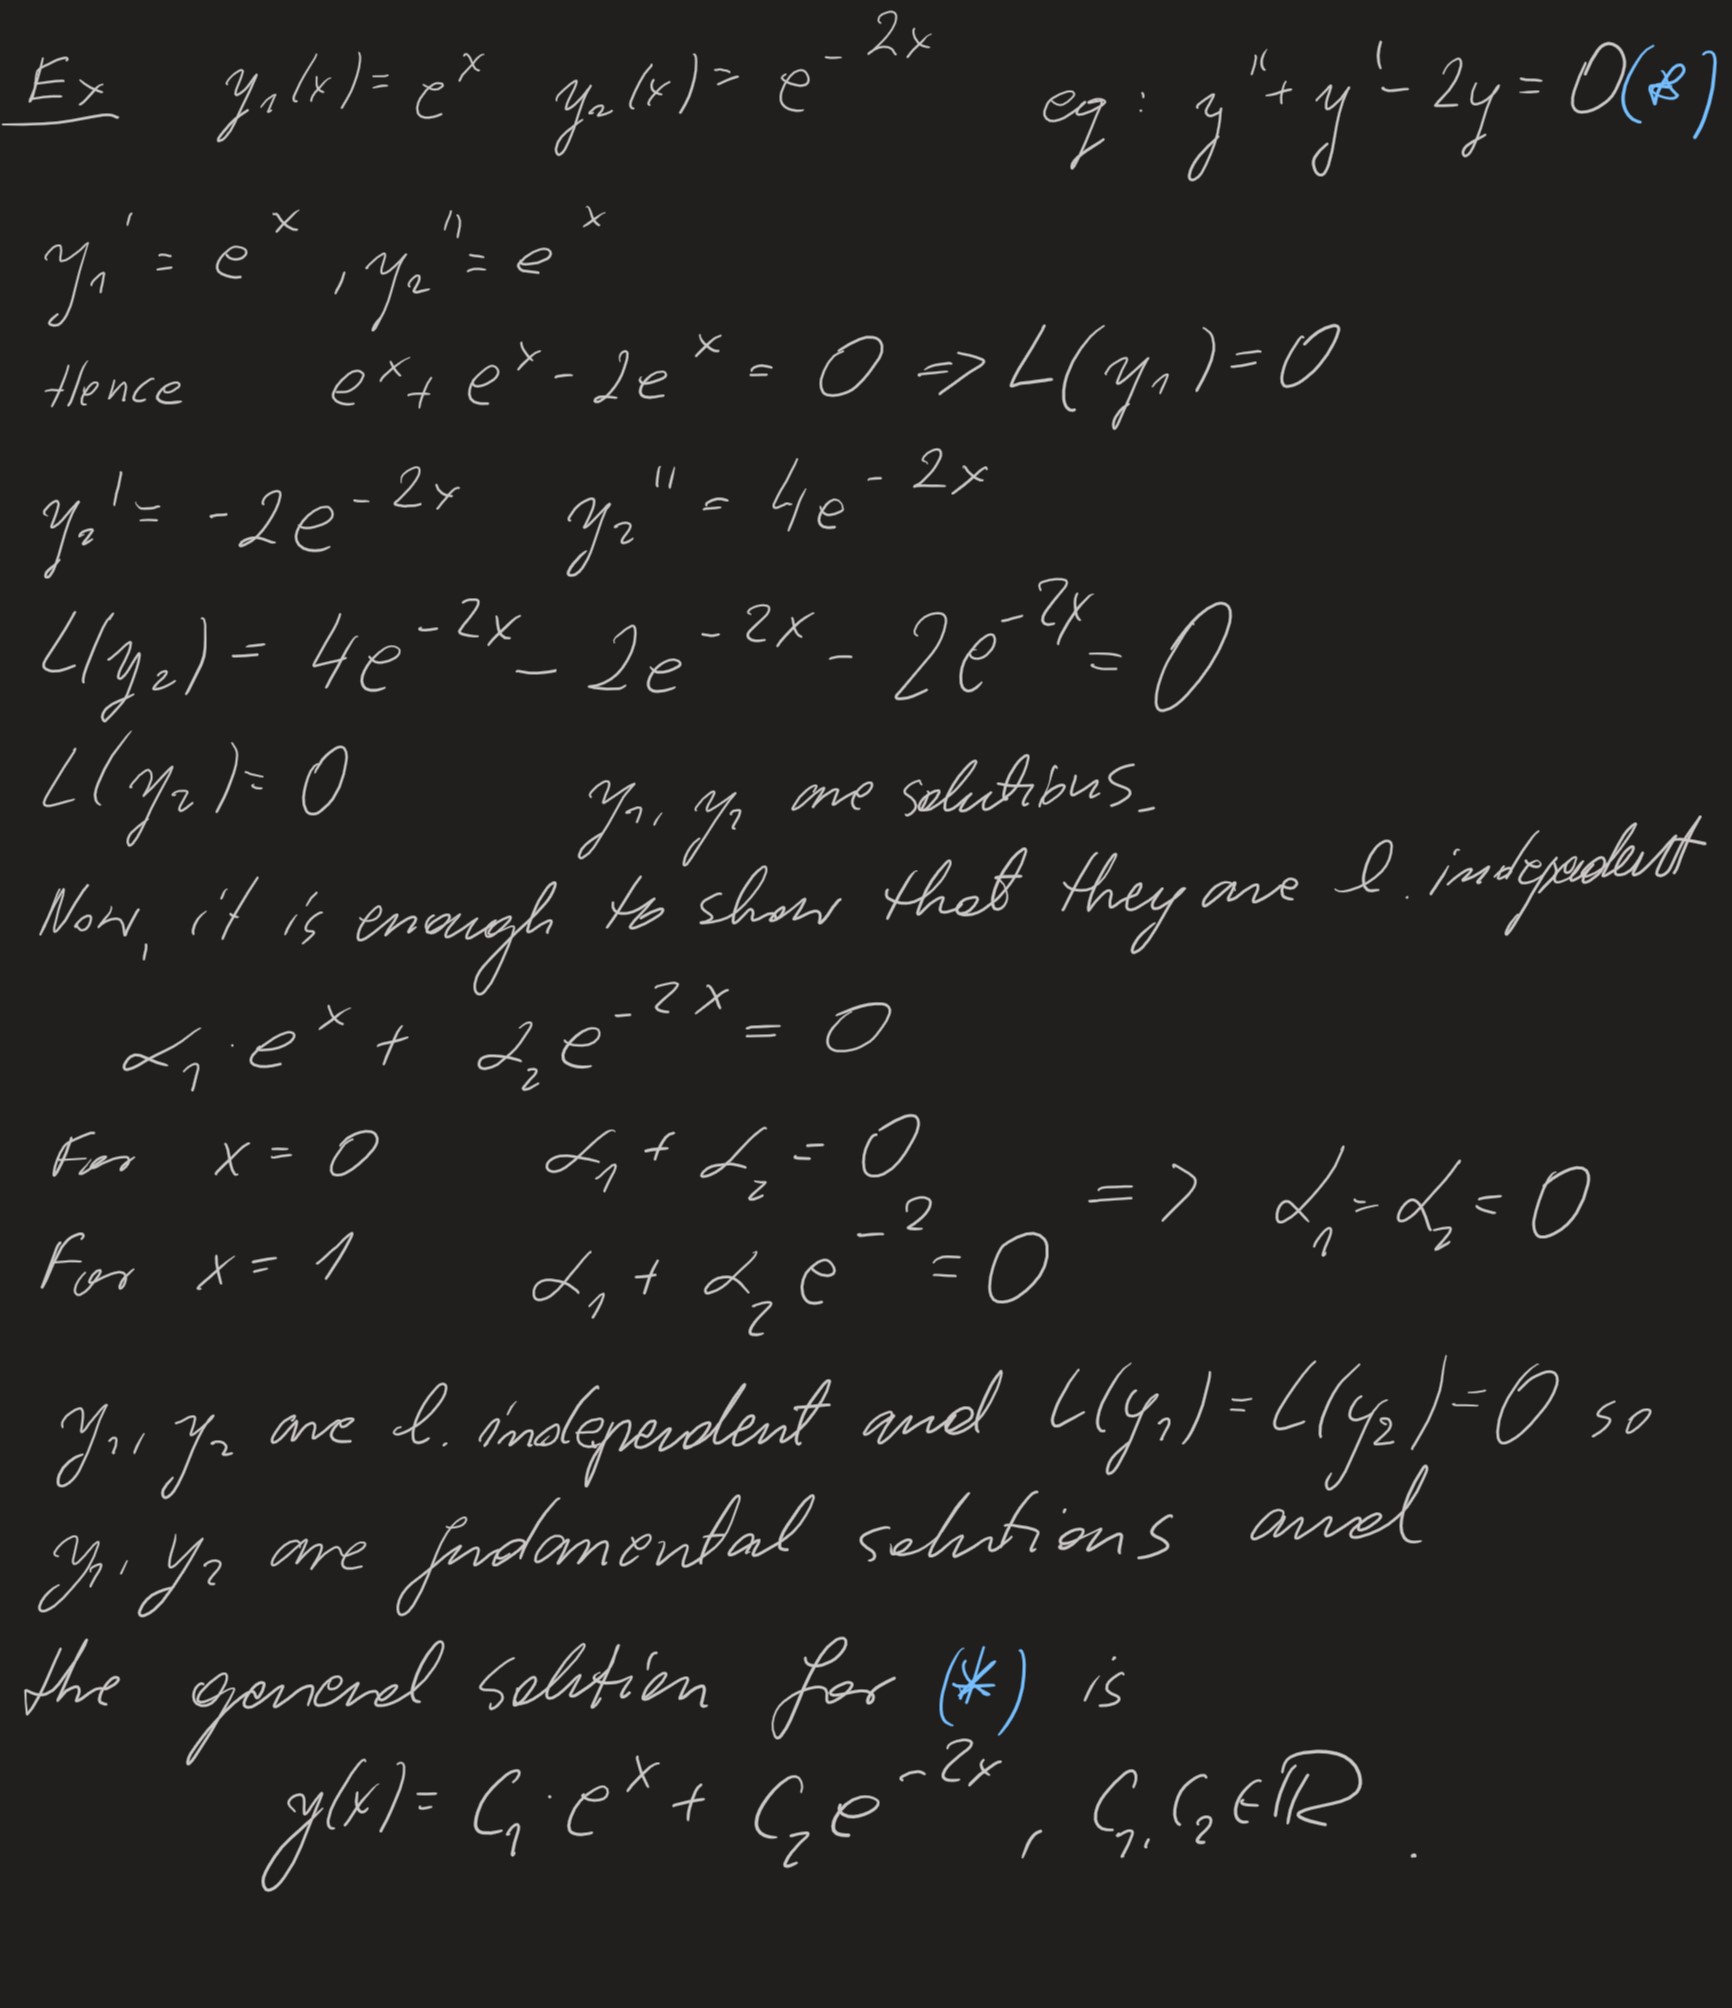 Ex y₁(x) = eˣ y₂(x) = e^{-2x} eq: y'' + y' - 2y = 0 (*)
y₁' = eˣ , y₂'' = eˣ
Hence eˣ + eˣ - 2eˣ = 0 => L(y₁) = 0
y₂' = -2e^{-2x} y₂'' = 4e^{-2x}
L(y₂) = 4e^{-2x} - 2e^{-2x} - 2e^{-2x} = 0
L(y₂) = 0 y₁, y₂ are solutions.
Now, it is enough to show that they are l. independent
α₁ · eˣ + α₂e^{-2x} = 0
For x = 0 α₁ + α₂ = 0
=> α₁ = α₂ = 0
For x = 1 α₁ + α₂ e^{-2} = 0
y₁, y₂ are l. independent and L(y₁) = L(y₂) = 0 so
y₁, y₂ are fudamental solutions and
the general solution for (*) is
y(x) = C₁ · eˣ + C₂ e^{-2x} , C₁, C₂ ∈ ℝ .